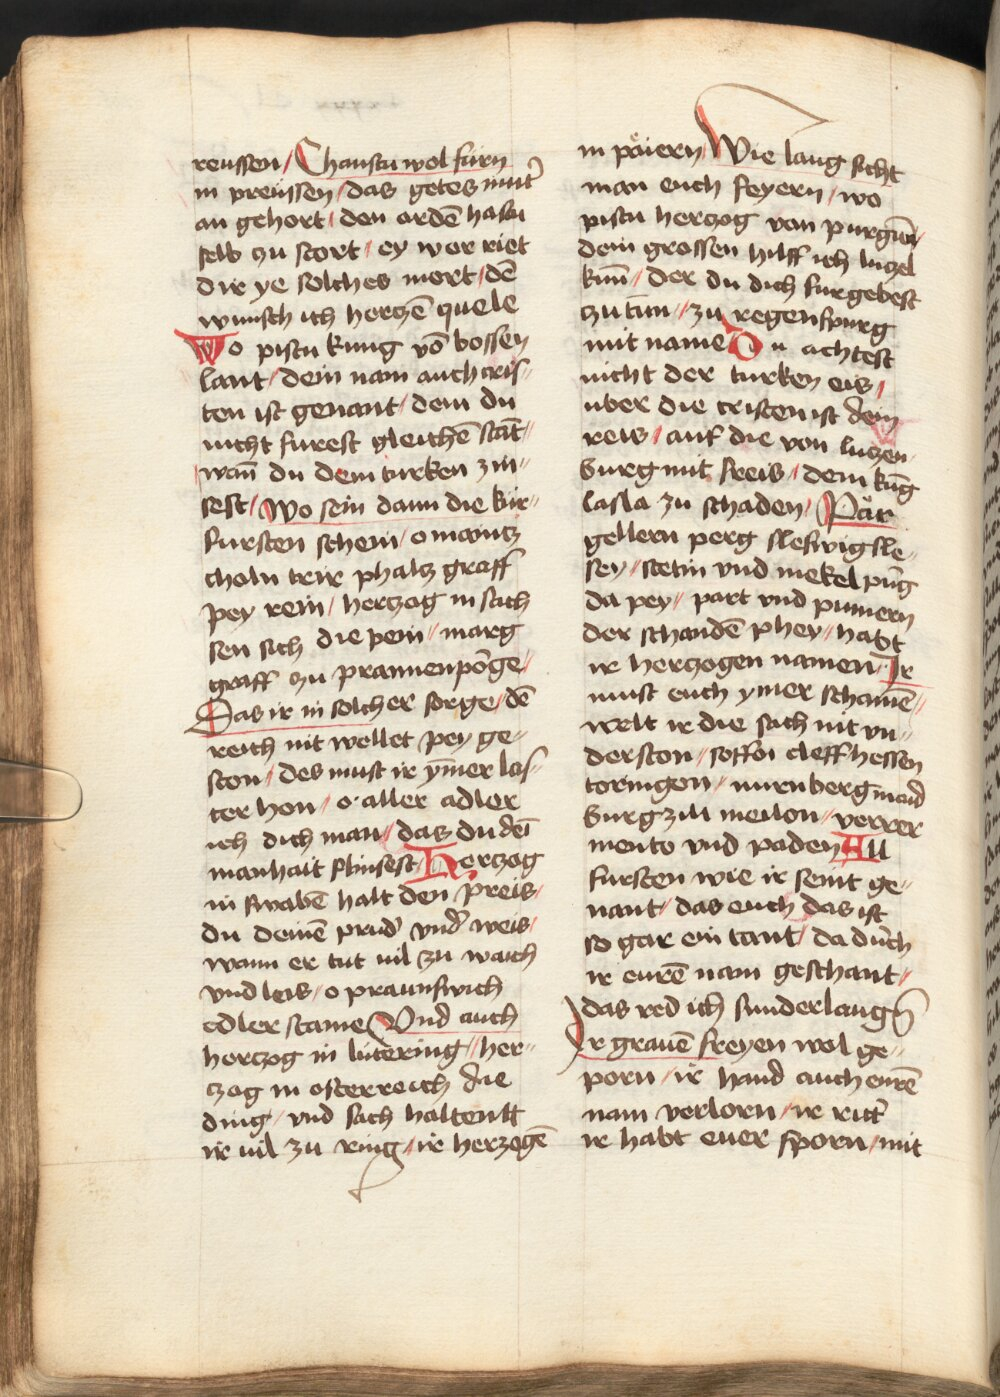 reussen / Chanstu wol furn
in preussen / das getes mut᷑
an gehort / den ordē hastu
selb zu stort / ey wer riet
dir ye solches mort / dē
wunsch ich herczē quele
Wo pistu kung vō bossen
lant / dein nam auch cris-
ten ist genant / dem du
nicht furest gleichē stāt //
wañ du dem turken zin //
sest / Wo sein dann die kür //
fursten schein / o maincz
choln trir phalcz graff
pey rein / herczog in sach
sen sich die pein // marg
graff zu prannenpōge //
Das ir in solcher sorge / dē
reich nit wellet pey ge //
sten / des must ir ym̄er las //
ter hon / o aller adler
ich dich man // das du dei
manhait slinsest / Herczog
in swabē halt den preis /
du deinē prud᷑ vnd᷑ weis /
wann er tut uil zu waich
vnd leis / o praunswich
edler stame Vnd auch
herczog in lutering // her //
zog in osterreich die
ding / vnd sach halten tt
ir uil zu ring / ir herzogē
in päiern Wie lang sicht
man euch feyern / wo
pistu herczog von purgūn /
dem grossen hilff ich luczel
kunn / der du dich fur gebest
zu tun // zu regenspurg
mit name Du achtest
nicht der turken eis /
uber die cristen ist dein
reis / auf die von luczen
burg mit kreis / dem kūg
lasla zu schaden / Pär
gellern perg sleswig sle //
sey / stetin vnd mekel pūrg
da pey // part vnd pumern
der schandē phey // habt
ir herczogen namen / Ir
must euch ymer schamē //
welt ir die sach nit vn //
dersten // soffoi cleff hessen
toringen // nurnberg maid
burg zu meilon // verrer
mento vnd paden All
fursten wie ir seint ge //
nant / das euch das ist
so gar ein tant / da durch
ir eurē nam geschant //
das red ich sunder laugn̄
Ir grauē freyen wol ge //
porn / ir hand auch eurē
nam verlorn / ir ritt᷑
ir habt euer sporn / mit